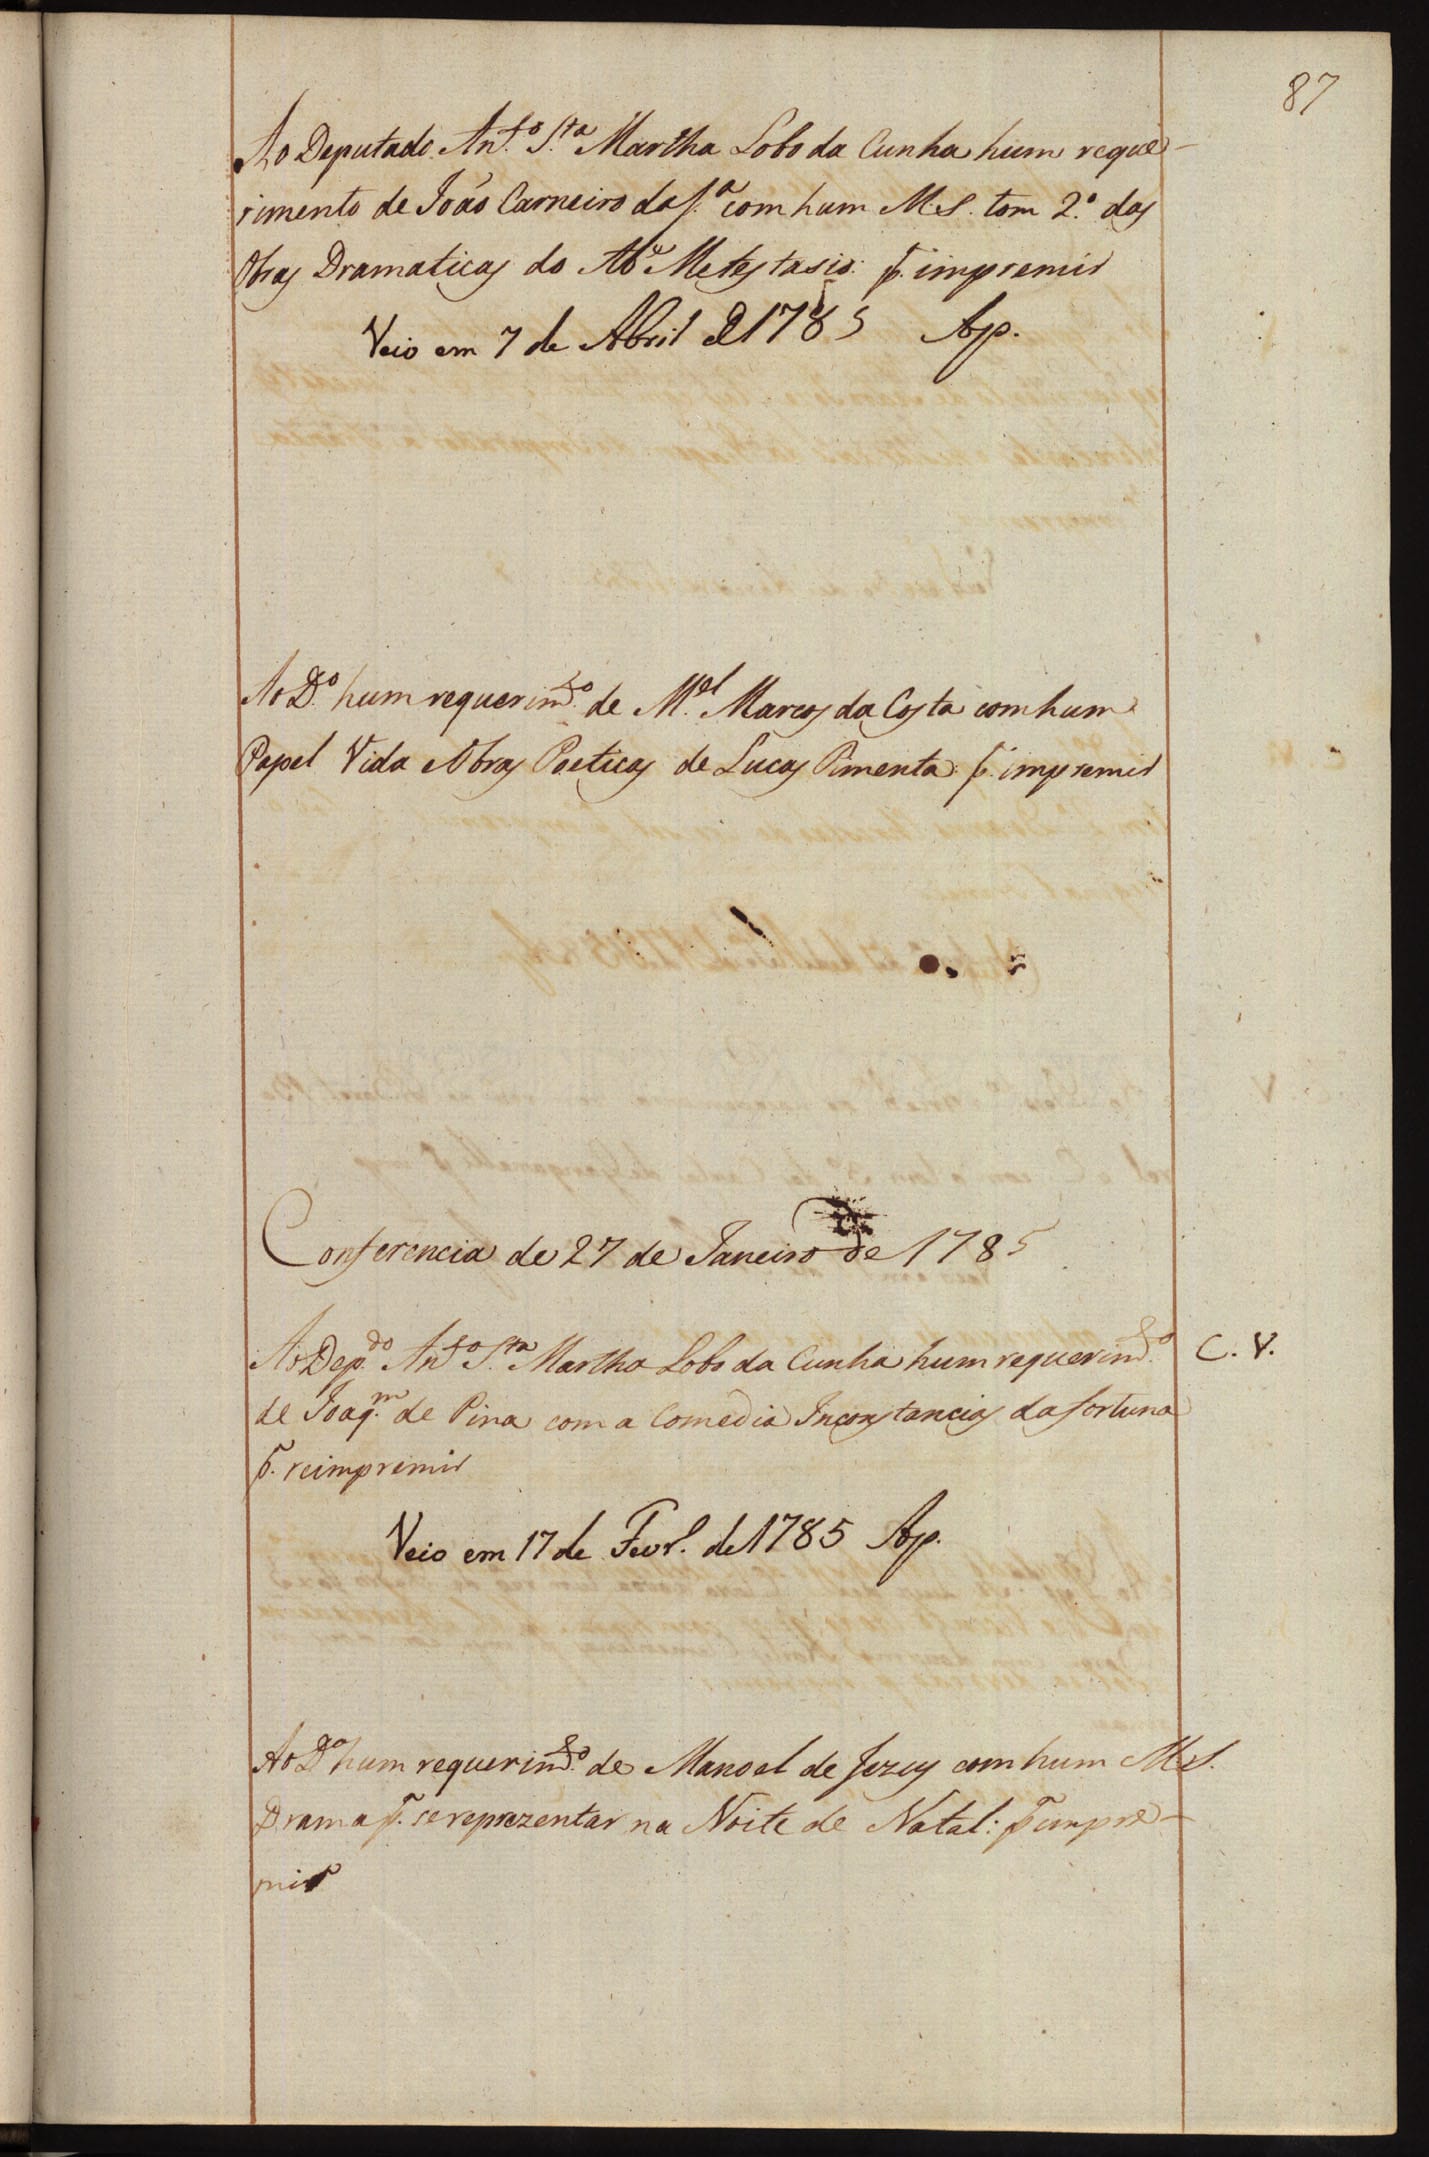 87
Ao Deputado Ant.º S.ta Martha Lobo da Cunha hum reque-
rimento de João Carneiro da S.ª com hum M.S. tom 2.º das
Obras Dramaticas do Ab.e Metestasio: p.ª impremir
Veio em 7 de Abril d 1785 Ap.
Ao D.º hum requerim.to de M.el Marcos da Costa com hum
Papel Vida e Obras Poeticas de Lucas Pimenta: p.ª impremir
Conferencia de 27 de Janeiro de 1785
Ao Dep.do Ant.º S.ta Martha Lobo da Cunha hum requerim.to C. V.
de Joaq.m de Pina com a Comedia Inconstancias da fortuna
p.ª reimprimir
Veio em 17 de Fevr.º de 1785 Ap.
Ao D.º hum requerim.to de Manoel de Jezus com hum M.S.
Drama p.ª se reprezentar na Noite de Natal: p.ª impre-
mir